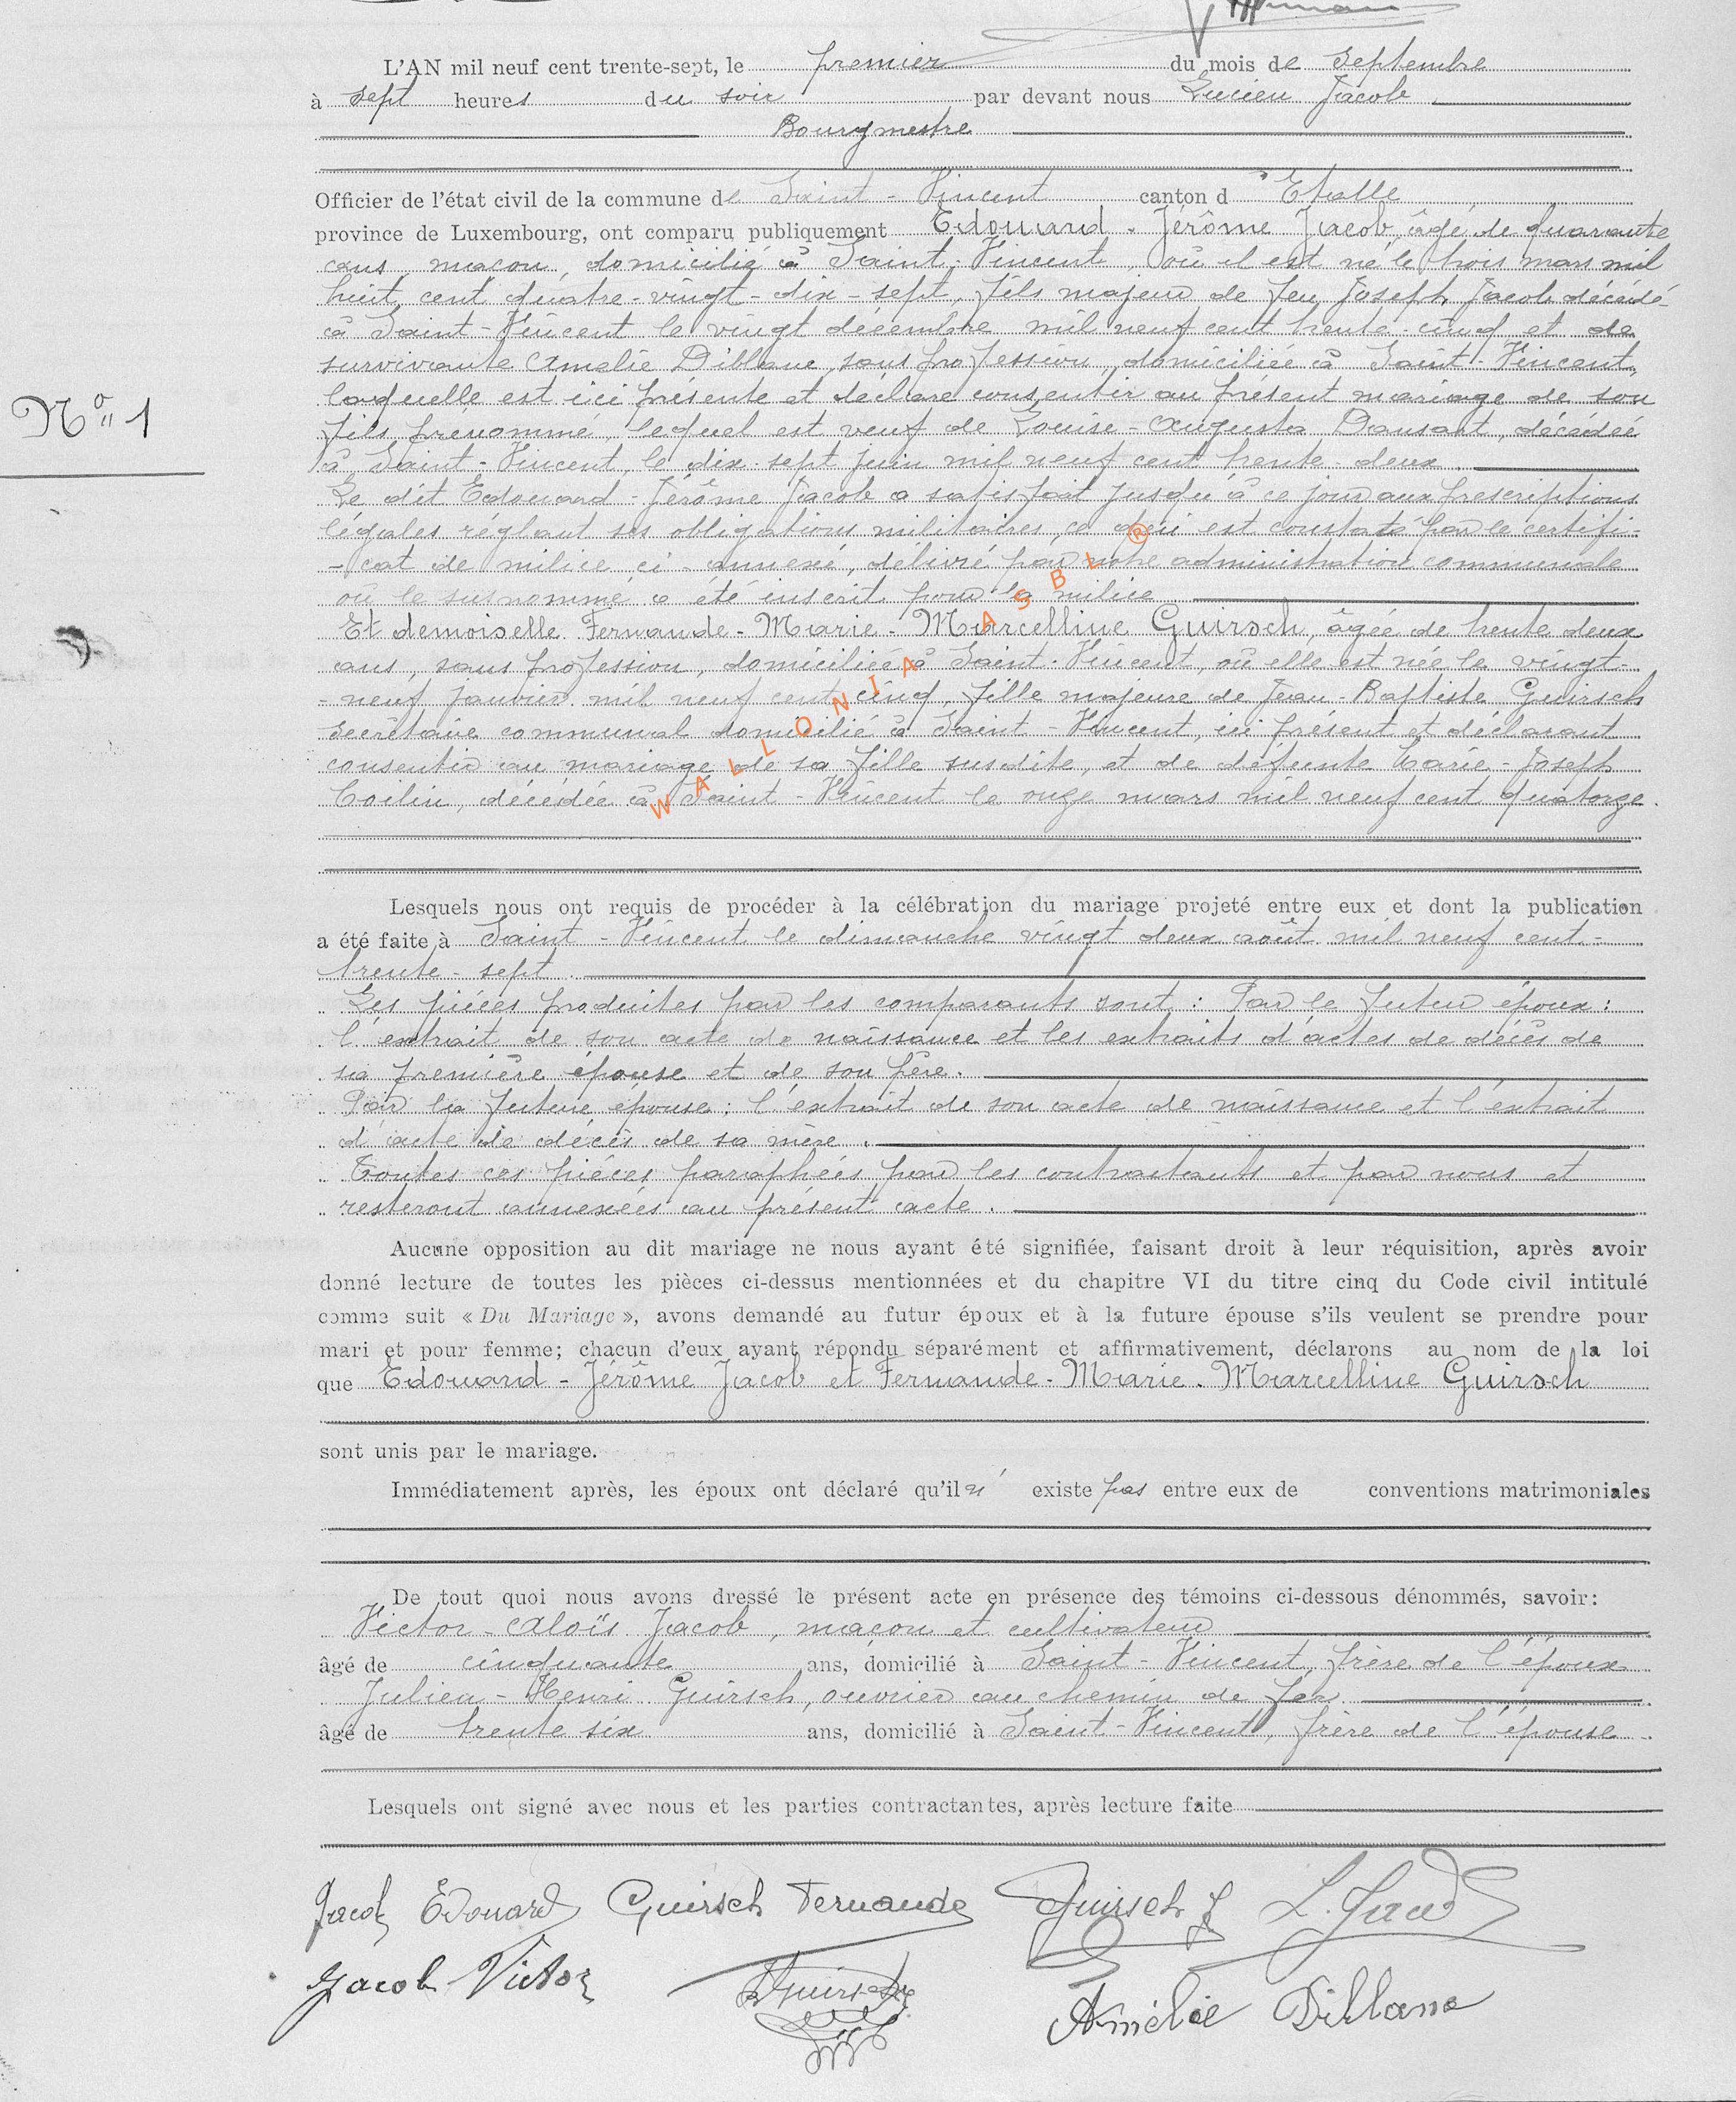 L'AN mil neuf cent trente-sept, le premier du mois de Septembre
à sept heures du soir par devant nous Lucien Jacob
Bourgmestre
Officier de l'état civil de la commune de Saint-Vincent canton d'Etalle
province de Luxembourg, ont comparu publiquement Edouard-Jérôme Jacob, âgé de quarante
ans, maçon, domicilié à Saint-Vincent, où il est né le trois mars mil
huit cent quatre-vingt-dix-sept, fils majeur de feu Joseph Jacob décédé
à Saint-Vincent le vingt décembre mil neuf cent trente-cinq et de
survivante Amélie Diblane, sans profession, domiciliée à Saint-Vincent,
laquelle est ici présente et déclare consentir au présent mariage de son
fils, prénommé, lequel est veuf de Louise-Augusta Dausart, décédée
N° 1
à Saint-Vincent, le dix-sept juin mil neuf cent trente-deux.
Le dit Edouard-Jérôme Jacob a satisfait jusqu'à ce jour aux prescriptions
légales réglant ses obligations militaires, ce qui est constaté par le certifi-
-cat de milice ci-annexé, délivré par notre administration communale
où le susnommé a été inscrit pour la milice
Et demoiselle Fernande-Marie-Marcelline Guirsch, âgée de trente deux
ans, sans profession, domiciliée à Saint-Vincent, où elle est née le vingt-
-neuf janvier mil neuf cent cinq, fille majeure de Jean-Baptiste Guirsch
secrétaire communal domicilié à Saint-Vincent, ici présent et déclarant
consentir au mariage de sa fille susdite, et de défunte Marie-Joseph
décédée à Saint-Vincent le onze mars mil neuf cent quatorze.
WALLONIA ASBL ®
Lesquels nous ont requis de procéder à la célébration du mariage projeté entre eux et dont la publication
a été faite à Saint-Vincent le dimanche vingt deux août mil neuf cent-
trente-sept.
Les pièces produites par les comparants sont : Par le futur époux :
l'extrait de son acte de naissance et les extraits d'actes de décès de
sa première épouse et de son père.
Par la future épouse : l'extrait de son acte de naissance et l'extrait
d'acte de décès de sa mère.
Toutes ces pièces paraphées par les contractants et par nous et
resteront annexées au présent acte.
Aucune opposition au dit mariage ne nous ayant été signifiée, faisant droit à leur réquisition, après avoir
donné lecture de toutes les pièces ci-dessus mentionnées et du chapitre VI du titre cinq du Code civil intitulé
comme suit « Du Mariage », avons demandé au futur époux et à la future épouse s'ils veulent se prendre pour
mari et pour femme; chacun d'eux ayant répondu séparément et affirmativement, déclarons au nom de la loi
que Edouard-Jérôme Jacob et Fernande-Marie-Marcelline Guirsch
sont unis par le mariage.
Immédiatement après, les époux ont déclaré qu'il n'existe pas entre eux de conventions matrimoniales
De tout quoi nous avons dressé le présent acte en présence des témoins ci-dessous dénommés, savoir:
Victor-Aloïs Jacob, maçon et cultivateur
âgé de cinquante ans, domicilié à Saint-Vincent, frère de l'époux
Julien-Henri Guirsch, ouvrier au chemin de fer
âgé de trente six ans, domicilié à Saint-Vincent, frère de l'épouse
Lesquels ont signé avec nous et les parties contractantes, après lecture faite
Jacob Edouard Guirsch Fernande Guirsch J L. Jacob
Jacob Victor Guirsch Amélie Diblane